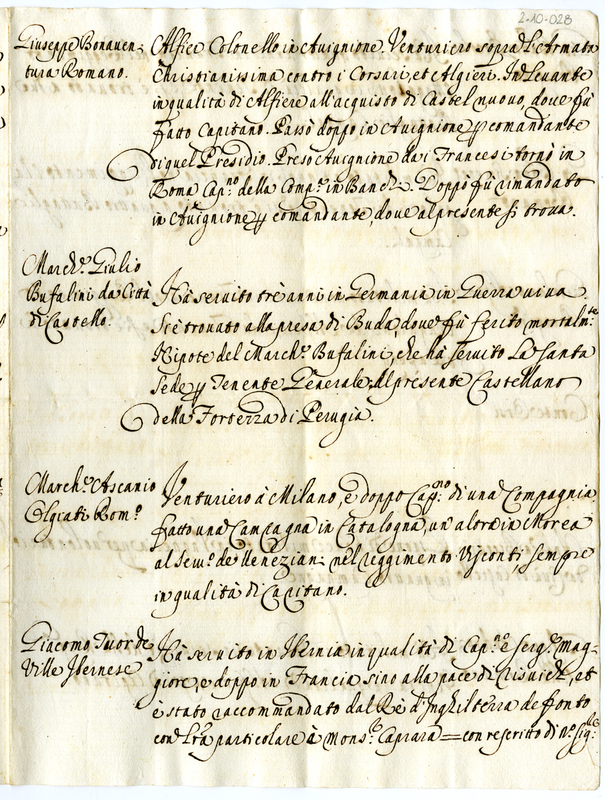 2-10-028
Giuseppe Bonaven-
tura Romano.
Alfiere Colonello in Avignione. Venturiero sopra l'Armata
Christianissima contro i Corsari, et Algieri. In Levante
in qualità di Alfiere all'acquisto di Castel nuovo, dove fù
fatto Capitano. Passò doppo in Avignione p comandante
di quel Presidio. Preso Avignione da i Francesi tornò in
Roma Cap.no della Comp.a in Banchi. Doppò fù rimandato
in Avignione p comandante, dove al presente si trova.
March.e Giulio
Bufalini da Città
di Castello.
Hà servito trè anni in Germania in Guerra viva.
Si è trovato alla presa di Buda, dove fù ferito mortalm.te
Nipote del March.e Bufalini, che hà servito la Santa
Sede p Tenente Generale. Al presente Castellano
della Fortezza di Perugia.
March.e Ascanio
Olgiati Rom.o
Venturiero à Milano, e doppo Cap.no di una Compagnia.
fatto una Campagna in Catalogna, un altra in Morea
al serv.o de Veneziani nel reggimento Visconti, sempre
in qualità di Capitano.
Giacomo Tuor de
Ville Ibernese
Hà servito in Ibernia in qualità di Cap.no e Serg.e mag-
giore, e doppo in Francia sino alla pace di Risuich, et
è stato raccommandato dal Rè d'Inghilterra defonto
con lra particolare à Mons.r Caprara = con rescritto di n.o Sig.re